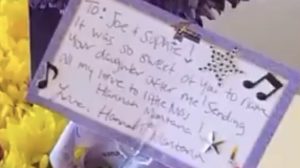 To: Joe + Sophie!
It was so sweet of you to name
your daughter after me! Sending
all my love to little Miss
Hannah Montana!
Love, Hannah Montana